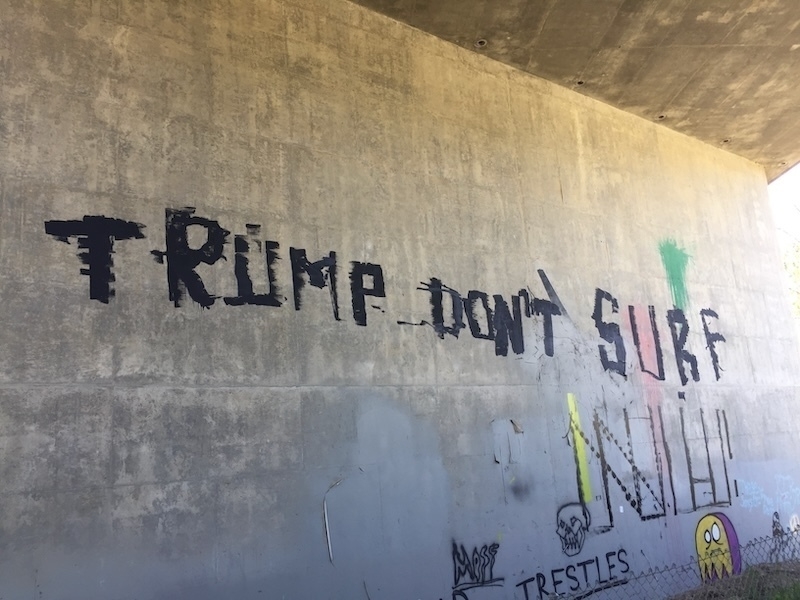 TRUMP DON'T SURF
TRESTLES